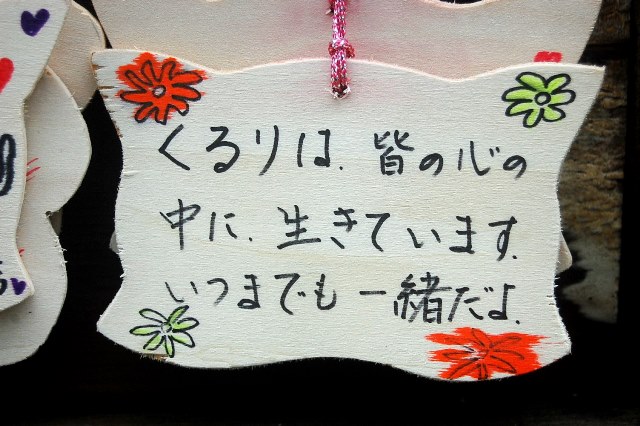 くるりは、皆の心の
中に、生きています。
いつまでも一緒だよ。